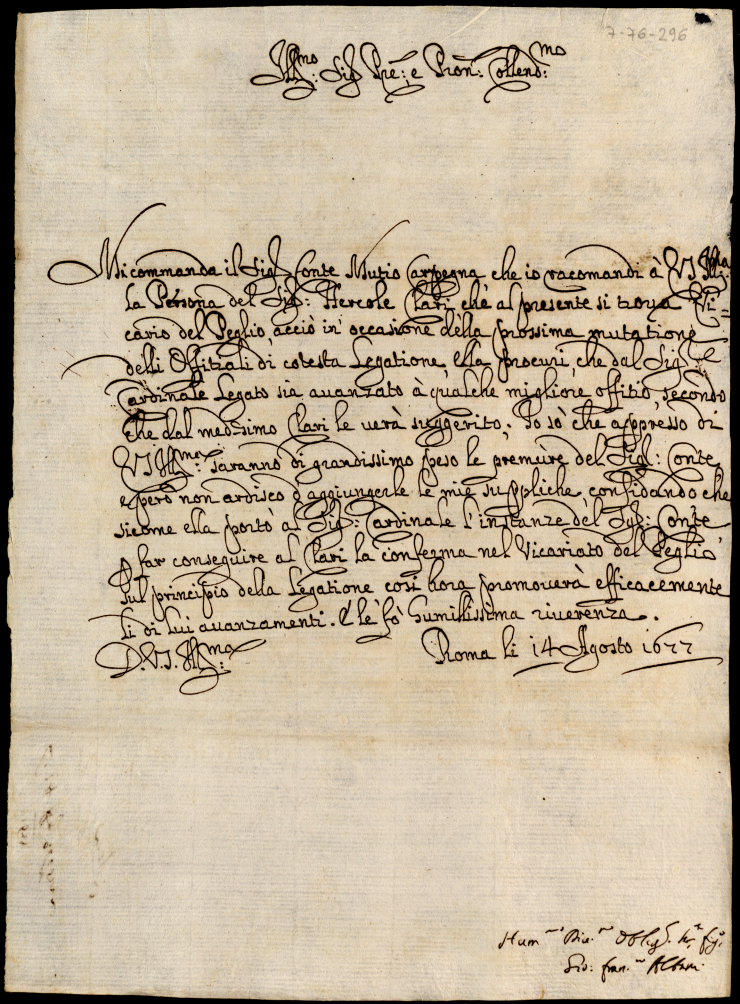 7-76-296
Ill:mo Sig.r Pre: e Pron: Collend:mo
Mi commanda il Sig.r Conte Mutio Carpegna che io racomandi à V.S. Ill:ma
la Persona del Sig: Hercole Clari che al presente si trova Vi=
cario del Peglio, acciò in occasione della prossima mutatione
delli Offitiali di cotesta Legatione, ella procuri, che dal Sig:re
Cardinale Legato sia avanzato à qualche migliore offitio, secondo
che dal medesimo Clari le verà suggerito. Io sò che appresso di
V.S. Ill:ma saranno di grandissimo peso le premure del Sig: Conte,
e però non ardisco d'aggiungerle le mie suppliche, confidando che
sicome ella portò al Sig: Cardinale l'instanze del Sig: Conte
p far conseguire al Clari la conferma nel Vicariato del Peglio
sul principio della Legatione così hora promoverà efficacemente
li di lui avanzamenti. E le fò humilissima riverenza.
D.V.S. Ill:ma Roma li 14 Agosto 1677
Hum.mo Div.mo Oblig.
Gio: Fran.co Albani